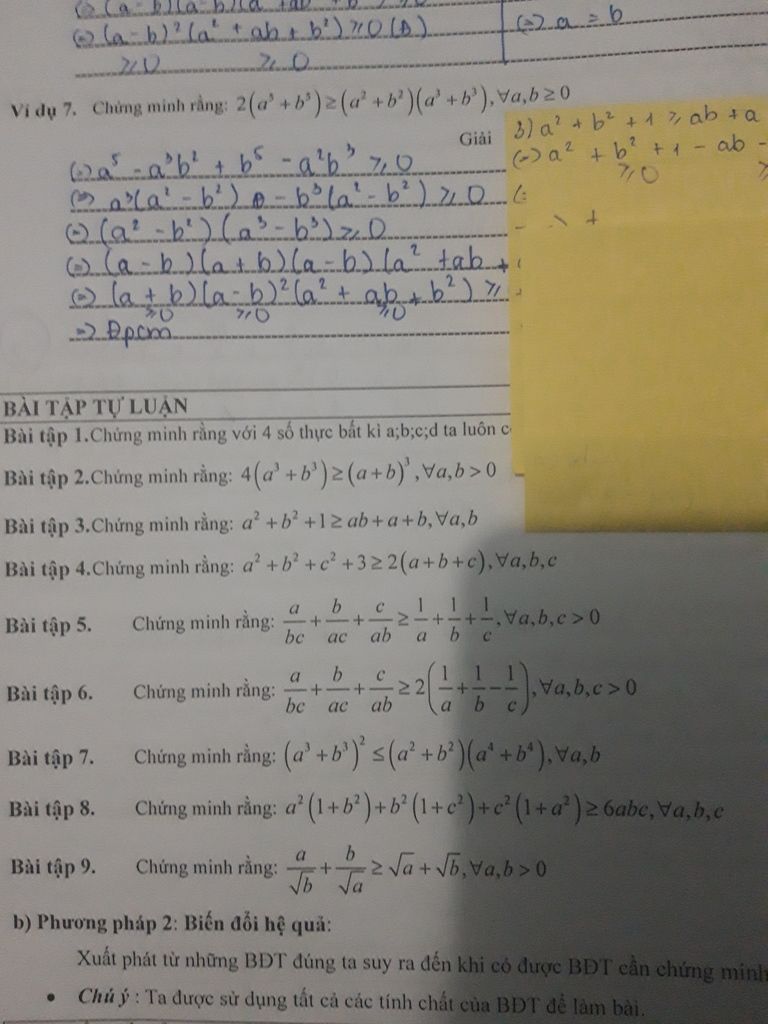 ⇔ (a-b)²(a² + ab + b²) ≥ 0 (Đ)
≥0 ≥0
⇔ a = b
Ví dụ 7. Chứng minh rằng: 2(a⁵ + b⁵) ≥ (a² + b²)(a³ + b³), ∀a,b ≥ 0
Giải
⇔ a⁵ - a³b² + b⁵ - a²b³ ≥ 0
⇔ a³(a² - b²) - b³(a² - b²) ≥ 0
⇔ (a² - b²)(a³ - b³) ≥ 0
⇔ (a-b)(a+b)(a-b)(a² + ab +
⇔ (a+b)(a-b)²(a² + ab + b²) ≥
≥0 ≥0 ≥0
=> Đpcm
3) a² + b² + 1 ≥ ab + a
⇔ a² + b² + 1 - ab -
≥0
BÀI TẬP TỰ LUẬN
Bài tập 1.Chứng minh rằng với 4 số thực bất kì a;b;c;d ta luôn
Bài tập 2.Chứng minh rằng: 4(a³ + b³) ≥ (a+b)³, ∀a,b > 0
Bài tập 3.Chứng minh rằng: a² + b² + 1 ≥ ab + a + b, ∀a,b
Bài tập 4.Chứng minh rằng: a² + b² + c² + 3 ≥ 2(a+b+c), ∀a,b,c
Bài tập 5. Chứng minh rằng: a/bc + b/ac + c/ab ≥ 1/a + 1/b + 1/c, ∀a,b,c > 0
Bài tập 6. Chứng minh rằng: a/bc + b/ac + c/ab ≥ 2(1/a + 1/b - 1/c), ∀a,b,c > 0
Bài tập 7. Chứng minh rằng: (a³ + b³)² ≤ (a² + b²)(a⁴ + b⁴), ∀a,b
Bài tập 8. Chứng minh rằng: a²(1+b²) + b²(1+c²) + c²(1+a²) ≥ 6abc, ∀a,b,c
Bài tập 9. Chứng minh rằng: a/√b + b/√a ≥ √a + √b, ∀a,b > 0
b) Phương pháp 2: Biến đổi hệ quả:
Xuất phát từ những BĐT đúng ta suy ra đến khi có được BĐT cần chứng minh
• Chú ý : Ta được sử dụng tất cả các tính chất của BĐT để làm bài.